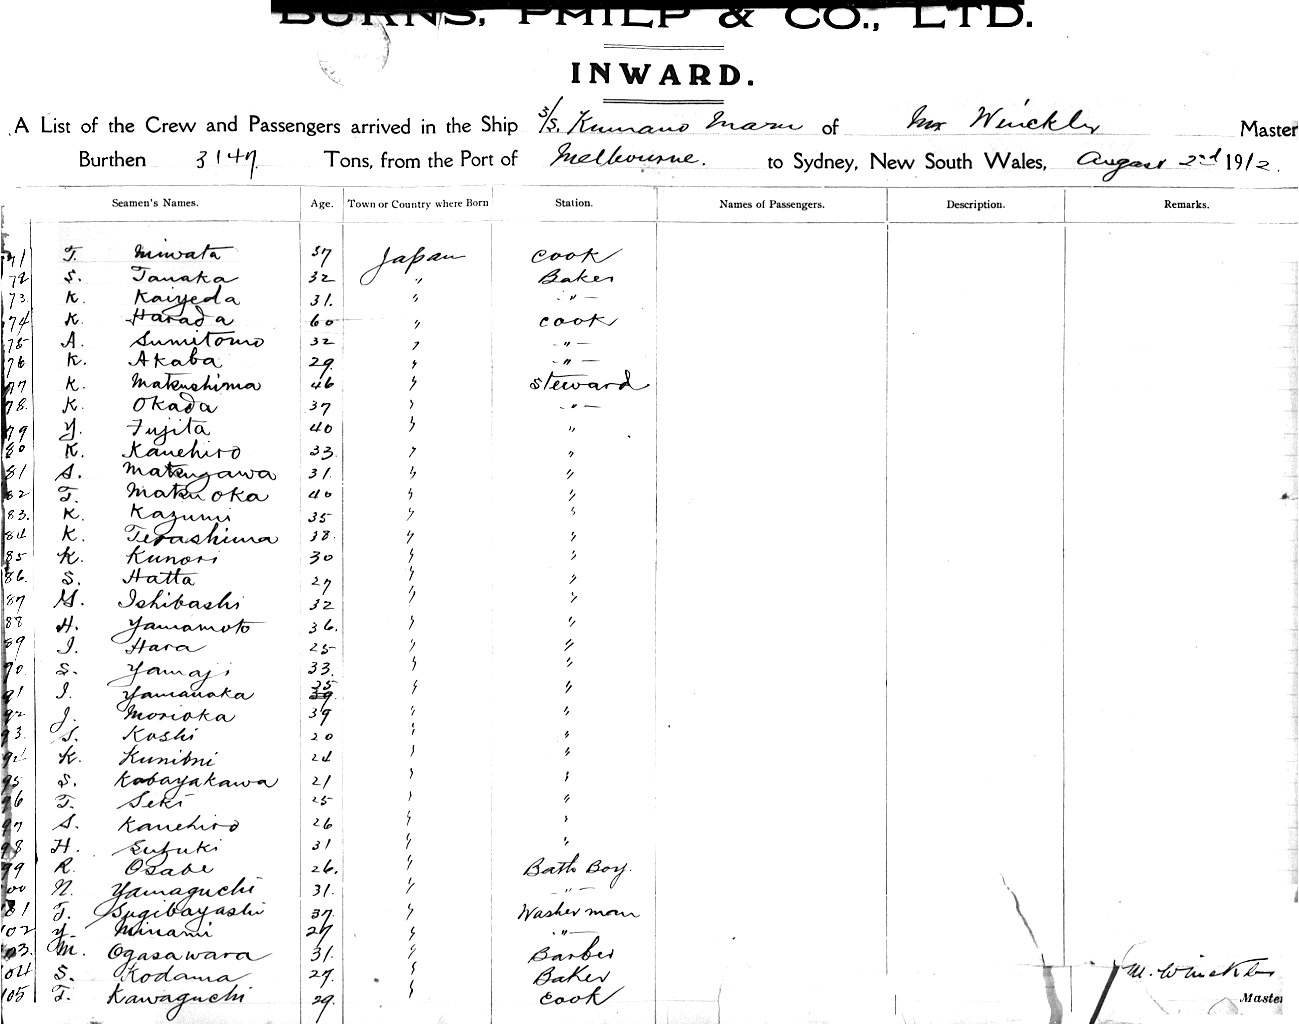 BURNS, PHILP & CO., LTD.
INWARD.
A List of the Crew and Passengers arrived in the Ship S/S. Kumano Maru of Mr Winckler Master
Burthen 3147 Tons, from the Port of Melbourne. to Sydney, New South Wales, August 2nd 1912.
Seamen's Names. Age. Town or Country where Born Station. Names of Passengers. Description. Remarks.
71 T. Miwata 37 Japan Cook
72 S. Tanaka 32 " Baker
73. K. Kaiyeda 31. " - " -
74 K. Harada 60 " Cook
75 A. Sumitomo 32 " - " -
76 K. Akaba 29. " - " -
77 K. Matsushima 46 " Steward
78. K. Okada 37 " - " -
79 Y. Fujita 40 " "
80 K. Kanehiro 33 " "
81 S. Matsugawa 31. " "
82 T. Matsuoka 40 " "
83. K. Kazumi 35 " "
84 K. Terashima 38. " "
85 K. Kunori 30 " "
86. S. Hatta 27 " "
87 G. Ishibashi 32 " "
88 H. Yamamoto 36. " "
89 I. Hara 25 " "
90 S. Yamaji 33. " "
91 I. Yamanaka 35 39 " "
92 J. Morioka 39 " "
93. S. Koshi 20 " "
94 K. 24 " "
95 S. Kobayakawa 21 " "
96 T. Seki 25 " "
97 S. Kanehiro 26 " "
98 H. Suzuki 31 " "
99 R. Osabe 26. " Bath Boy.
100 N. Yamaguchi 31. " - " -
101 T. Sugibayashi 37. " Washerman
102 Y. Minami 27 " - " -
103. M. Ogasawara 31. " Barber
104 S. Kodama 27. " Baker
105 T. Kawaguchi 29. " Cook
M. Winckler
Master